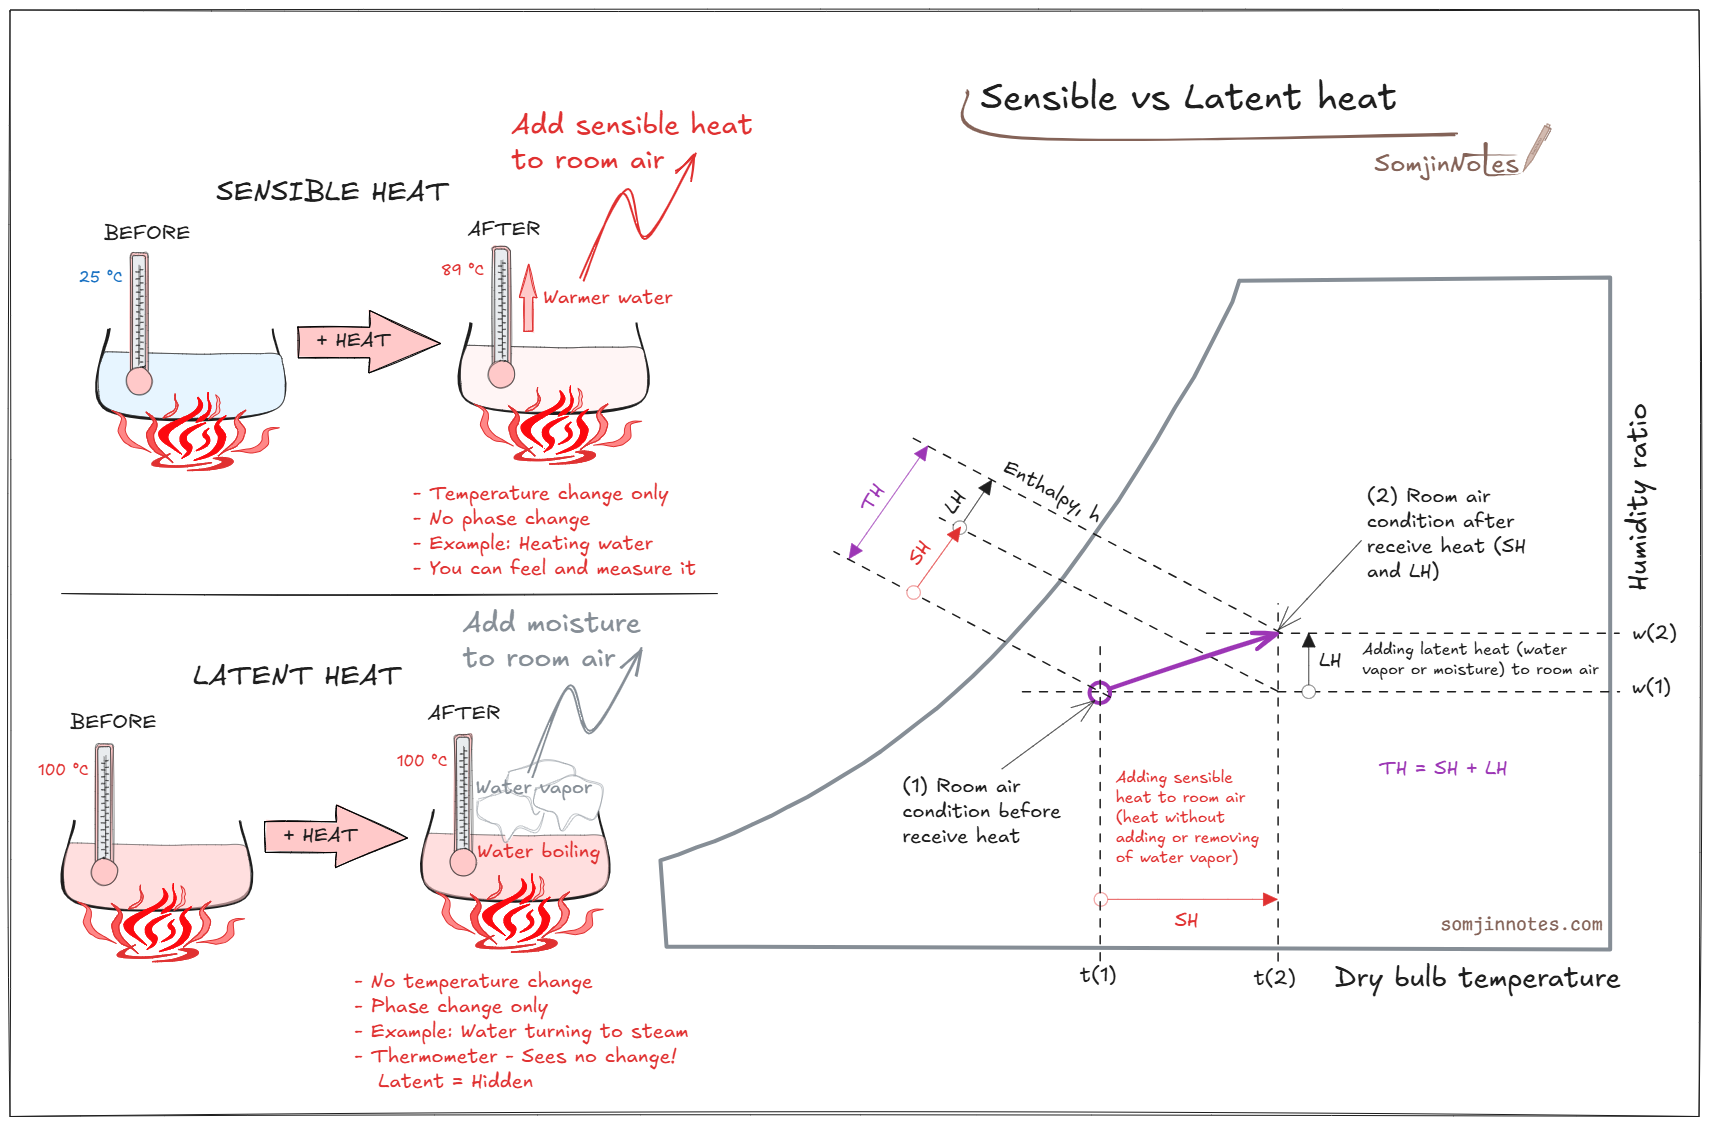 Sensible vs Latent heat
SomjinNotes
Add sensible heat
to room air
SENSIBLE HEAT
BEFORE
25 °C
+ HEAT
AFTER
89 °C
Warmer water
- Temperature change only
- No phase change
- Example: Heating water
- You can feel and measure it
Add moisture
to room air
LATENT HEAT
BEFORE
100 °C
+ HEAT
AFTER
100 °C
Water vapor
Water boiling
- No temperature change
- Phase change only
- Example: Water turning to steam
- Thermometer - Sees no change!
Latent = Hidden
TH
SH
LH
Enthalpy, h
(2) Room air
condition after
receive heat (SH
and LH)
Humidity ratio
w(2)
LH
Adding latent heat (water
vapor or moisture) to room air
w(1)
(1) Room air
condition before
receive heat
Adding sensible
heat to room air
(heat without
adding or removing
of water vapor)
SH
TH = SH + LH
somjinnotes.com
t(1)
t(2)
Dry bulb temperature